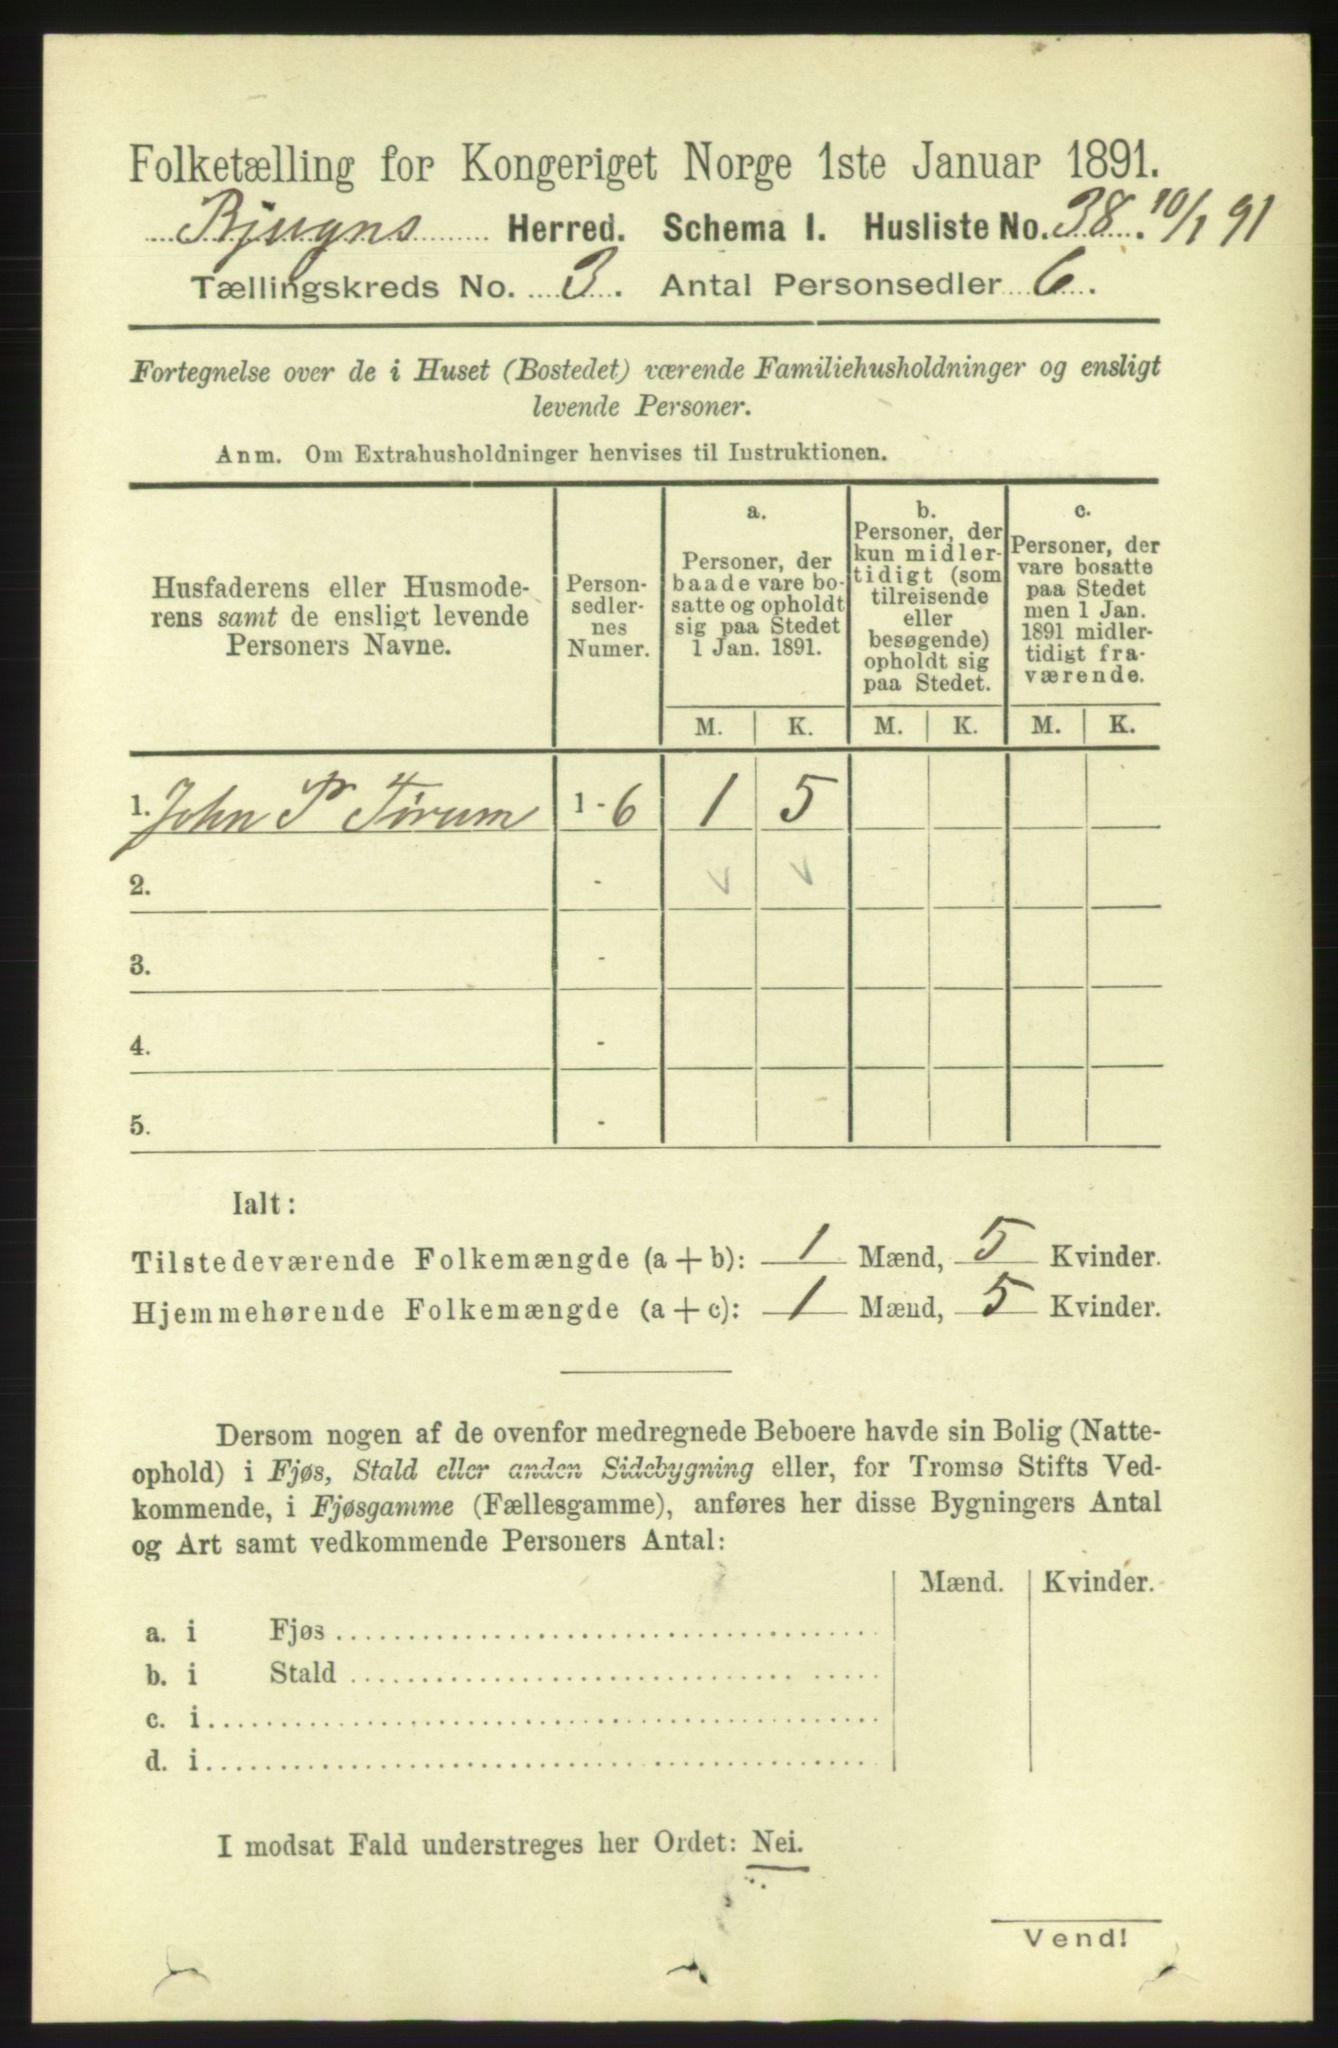 Folketælling for Kongeriget Norge 1ste Januar 1891.
Bjugns Herred. Schema I. Husliste No. 38. 10/1 91
Tællingskreds No. 3. Antal Personsedler 6.
Fortegnelse over de i Huset (Bostedet) værende Familiehusholdninger og ensligt
levende Personer.
Anm. Om Extrahusholdninger henvises til Instruktionen.
Husfaderens eller Husmode-
rens samt de ensligt levende
Personers Navne.
Person-
sedler-
nes
Numer.
a.
Personer, der
baade vare bo-
satte og opholdt
sig paa Stedet
1 Jan. 1891.
b.
Personer, der
kun midler-
tidigt (som
tilreisende
eller
besøgende)
opholdt sig
paa Stedet.
c.
Personer, der
vare bosatte
paa Stedet
men 1 Jan.
1891 midler-
tidigt fra-
værende.
M. K. M. K. M. K.
1. John P Tørum 1 - 6 1 5
2. -
3. -
4. -
5. -
Ialt:
Tilstedeværende Folkemængde (a + b): 1 Mænd, 5 Kvinder.
Hjemmehørende Folkemængde (a + c): 1 Mænd, 5 Kvinder.
Dersom nogen af de ovenfor medregnede Beboere havde sin Bolig (Natte-
ophold) i Fjøs, Stald eller anden Sidebygning eller, for Tromsø Stifts Ved-
kommende, i Fjøsgamme (Fællesgamme), anføres her disse Bygningers Antal
og Art samt vedkommende Personers Antal:
Mænd. Kvinder.
a. i Fjøs
b. i Stald
c. i
d. i
I modsat Fald understreges her Ordet: Nei.
Vend!